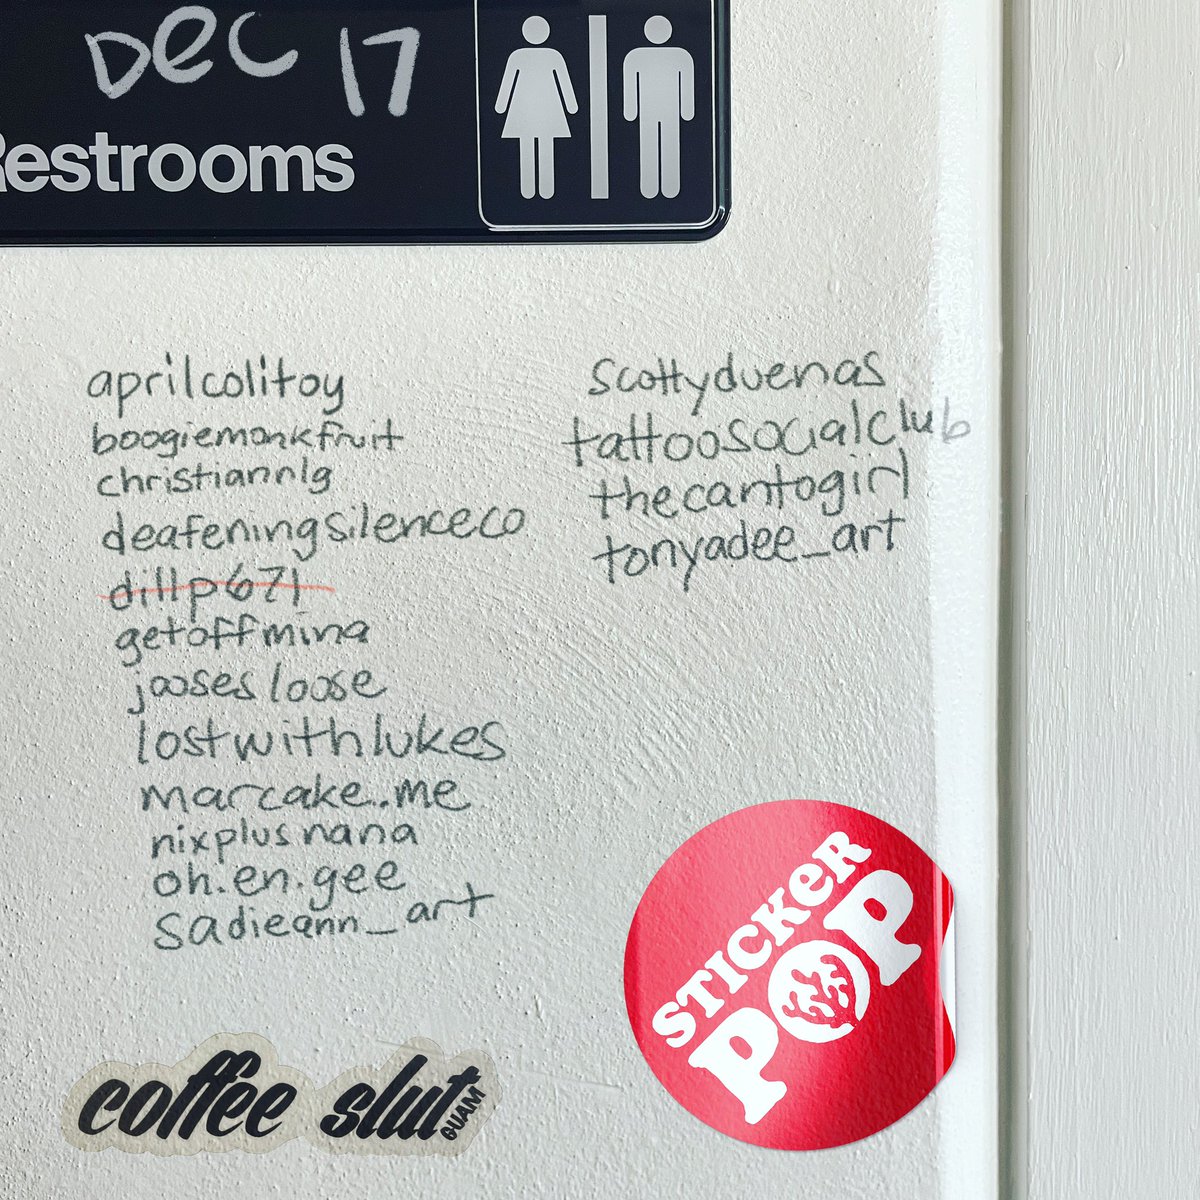 Dec 17
Restrooms
aprilcolitoy
boogiemonkfruit
christiannlg
deafeningsilenceco
dillp671
getoffmina
jooses loose
lostwithlukes
marcake..me
nixplusnana
oh.en.gee
sadieann_art
scottyduenas
tattoosocialclub
thecantogirl
tonyadee_art
STICKER
POP
coffee slut
GUAM